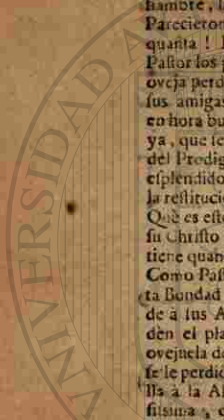 hambre, l
Parecieron
quanta ! I
Pastor los
oveja perd
sus amigas
en hora bu
ya, que se
del Prodig
esplendido
la restituci
Què es este
su Christo
tiene quan
Como Pas
ta Bondad
de à sus A
den el pla
ovejuela de
se le perdi
lla à la A
UNIVERSIDAD